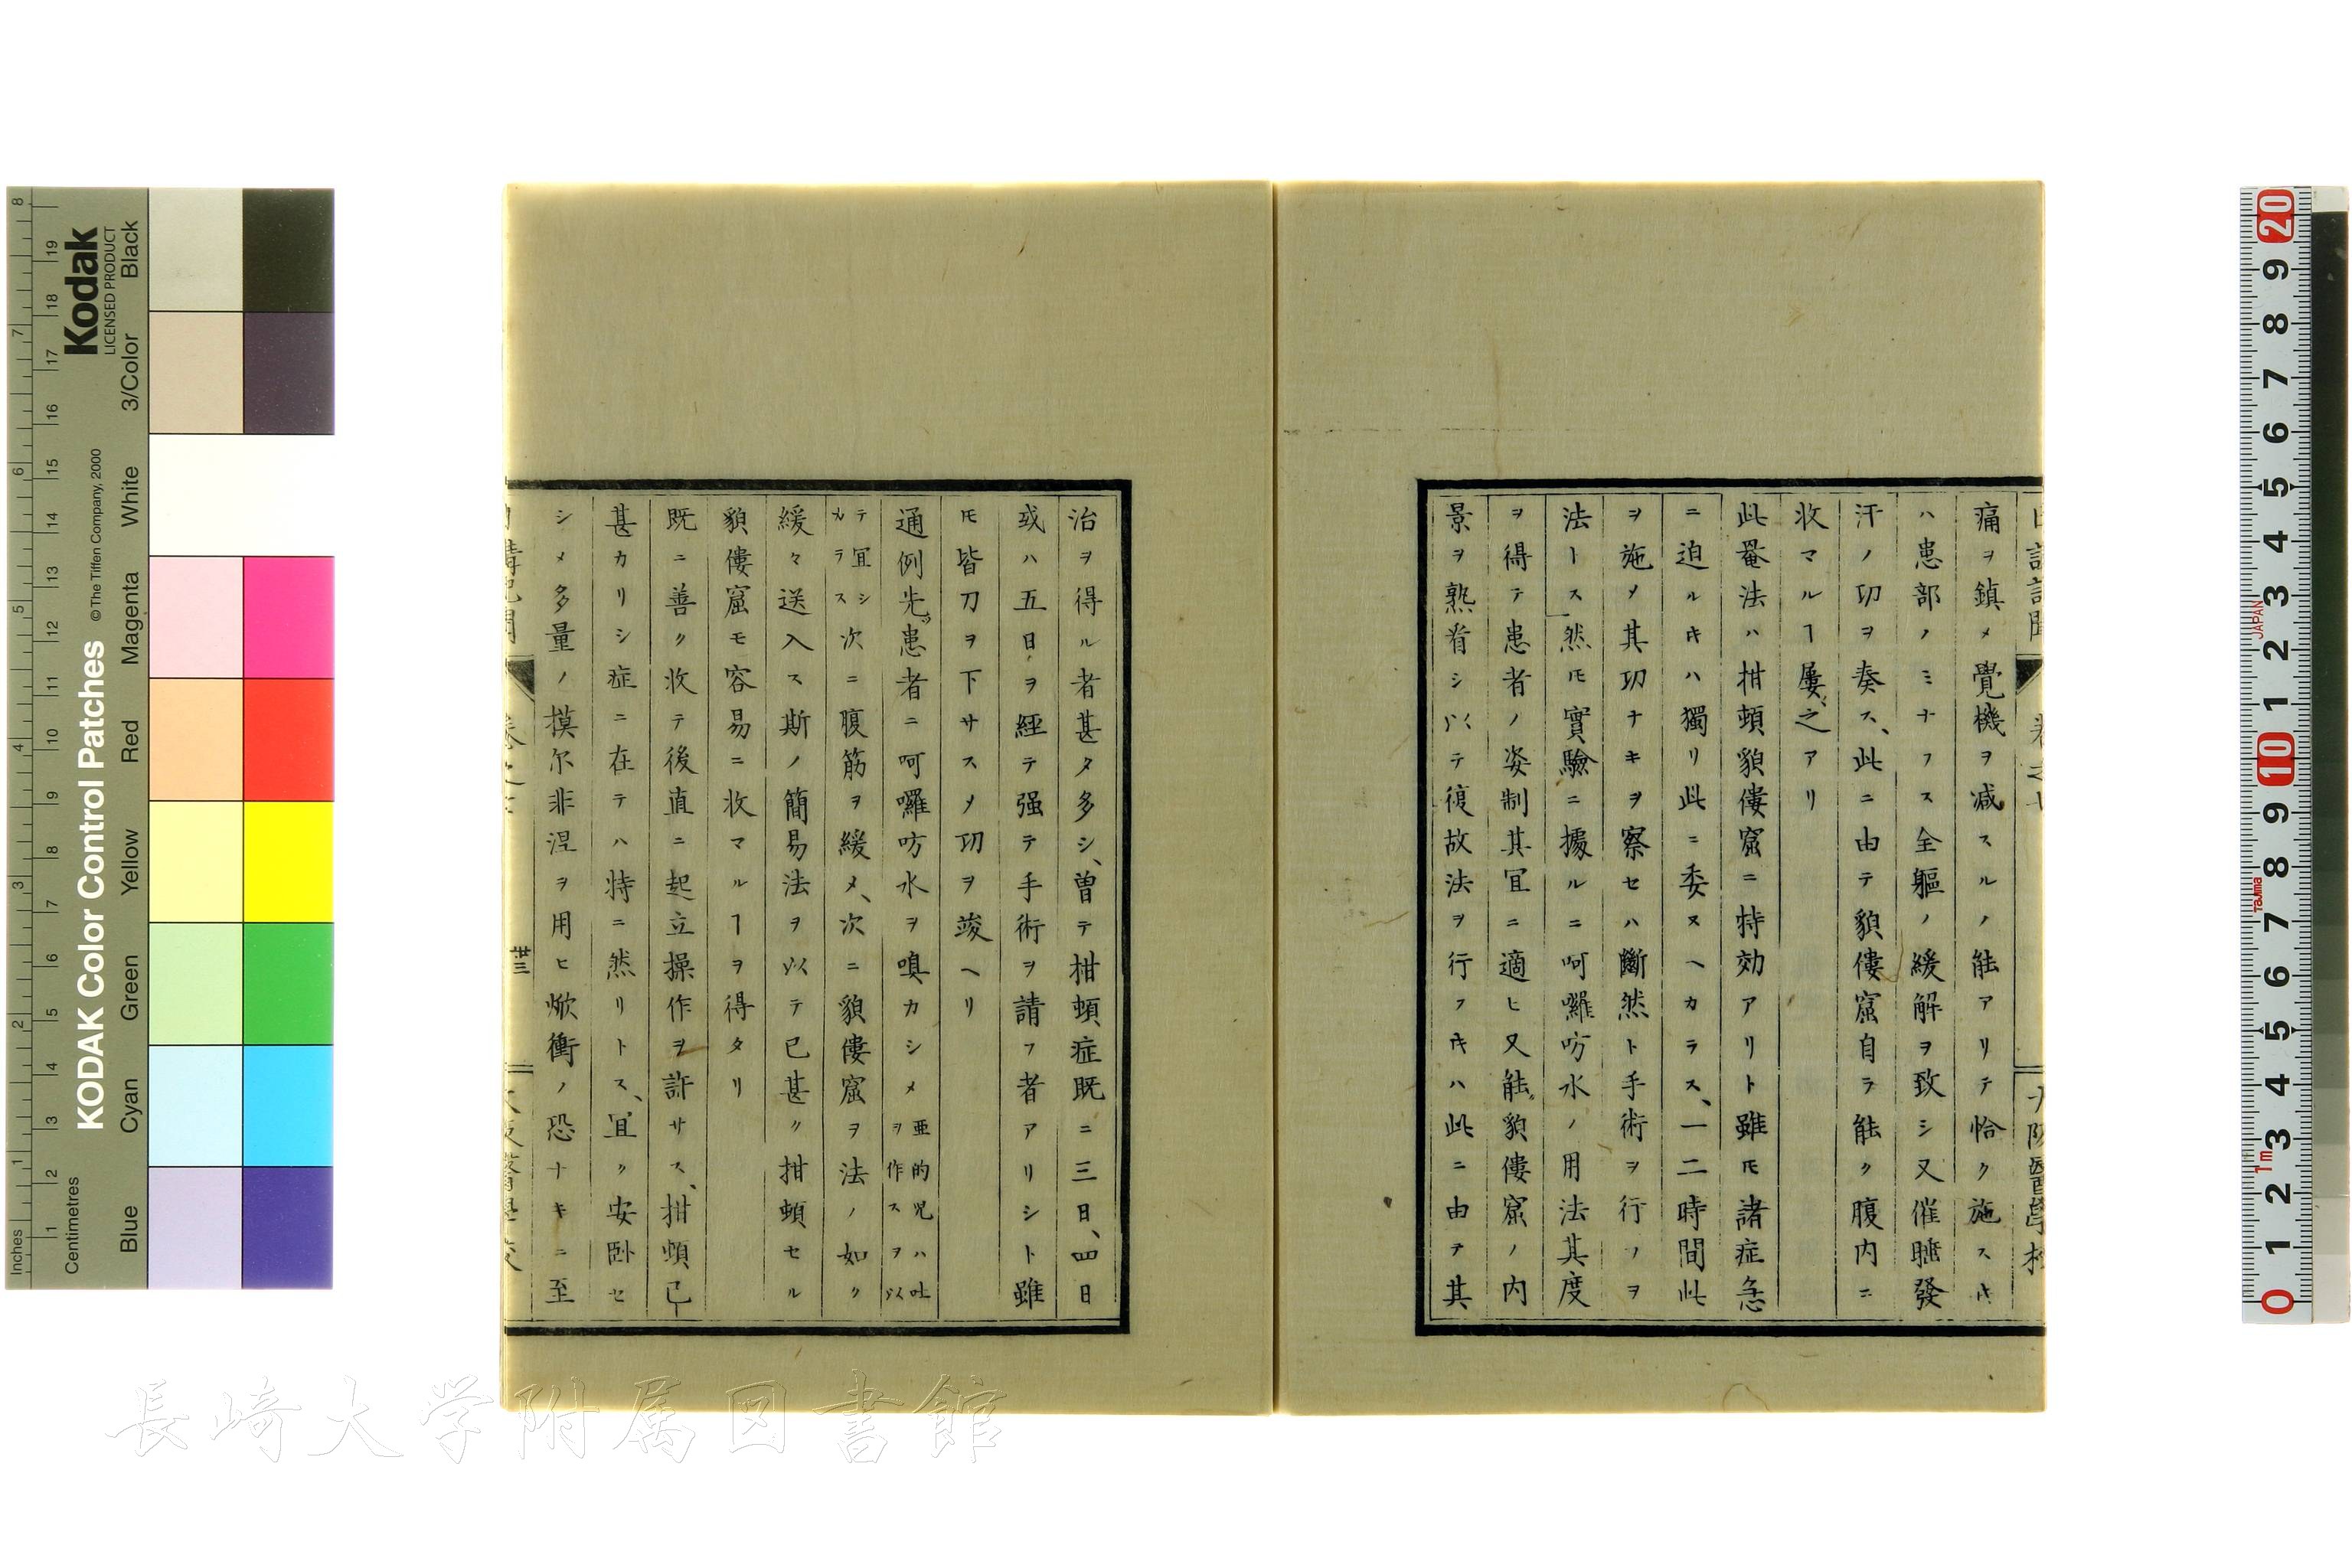 痛ヲ鎮メ覺機ヲ減スルノ能アリテ恰ク施スキ
ハ患部ノミナフス全軀ノ緩解ヲ致シ又催聽發
汗ノ功ヲ奏ス、此ニ由テ貌僂窟自ラ能ク腹内ニ
收マルヿ屢、之アリ
此罨法ハ拑頓貌僂窟ニ特効アリト雖モ諸症急
ニ迫ルキハ獨リ此ニ委ヌヘカラス、一二時間此
ヲ施メ其功ナキヲ察セハ斷然ト手術ヲ行フヲ
法トス然モ實驗ニ據ルニ呵囉吩水ノ用法其度
ヲ得テ患者ノ姿制其冝ニ適ヒ又能貌僂窟ノ内
景ヲ熟省シ以テ復故法ヲ行フキハ此ニ由テ其
治ヲ得ル者甚タ多シ、曽テ拑頓症既ニ三日、四日
或ハ五日ヲ經テ强テ手術ヲ請フ者アリシト雖
モ皆刀ヲ下サスメ功ヲ竣ヘリ
通例先患者ニ呵囉吩水ヲ嗅カシメ亜的児ハ吐ヲ作スヲ以
テ宜シカラス次ニ腹筋ヲ緩メ、次ニ貌僂窟ヲ法ノ如ク
緩々送入ス斯ノ簡易法ヲ以テ已甚〃拑頓セル
貌僂窟モ容易ニ收マルヿヲ得タリ
既ニ善ク收テ後直ニ起立操作ヲ許サス、拑頓已
甚カリシ症ニ在テハ特ニ然リトス、宜ク安卧セ
シメ多量ノ摸尓非涅ヲ用ヒ焮衝ノ恐ナキニ至
卅三
Kodak
LICENSED PRODUCT
KODAK Color Control Patches
©The Tiffen Company, 2000
Inches
Centimetres
Blue
Cyan
Green
Yellow
Red
Magenta
White
3/Color
Black
JAPAN
Tajima
1m
長崎大学附属図書館